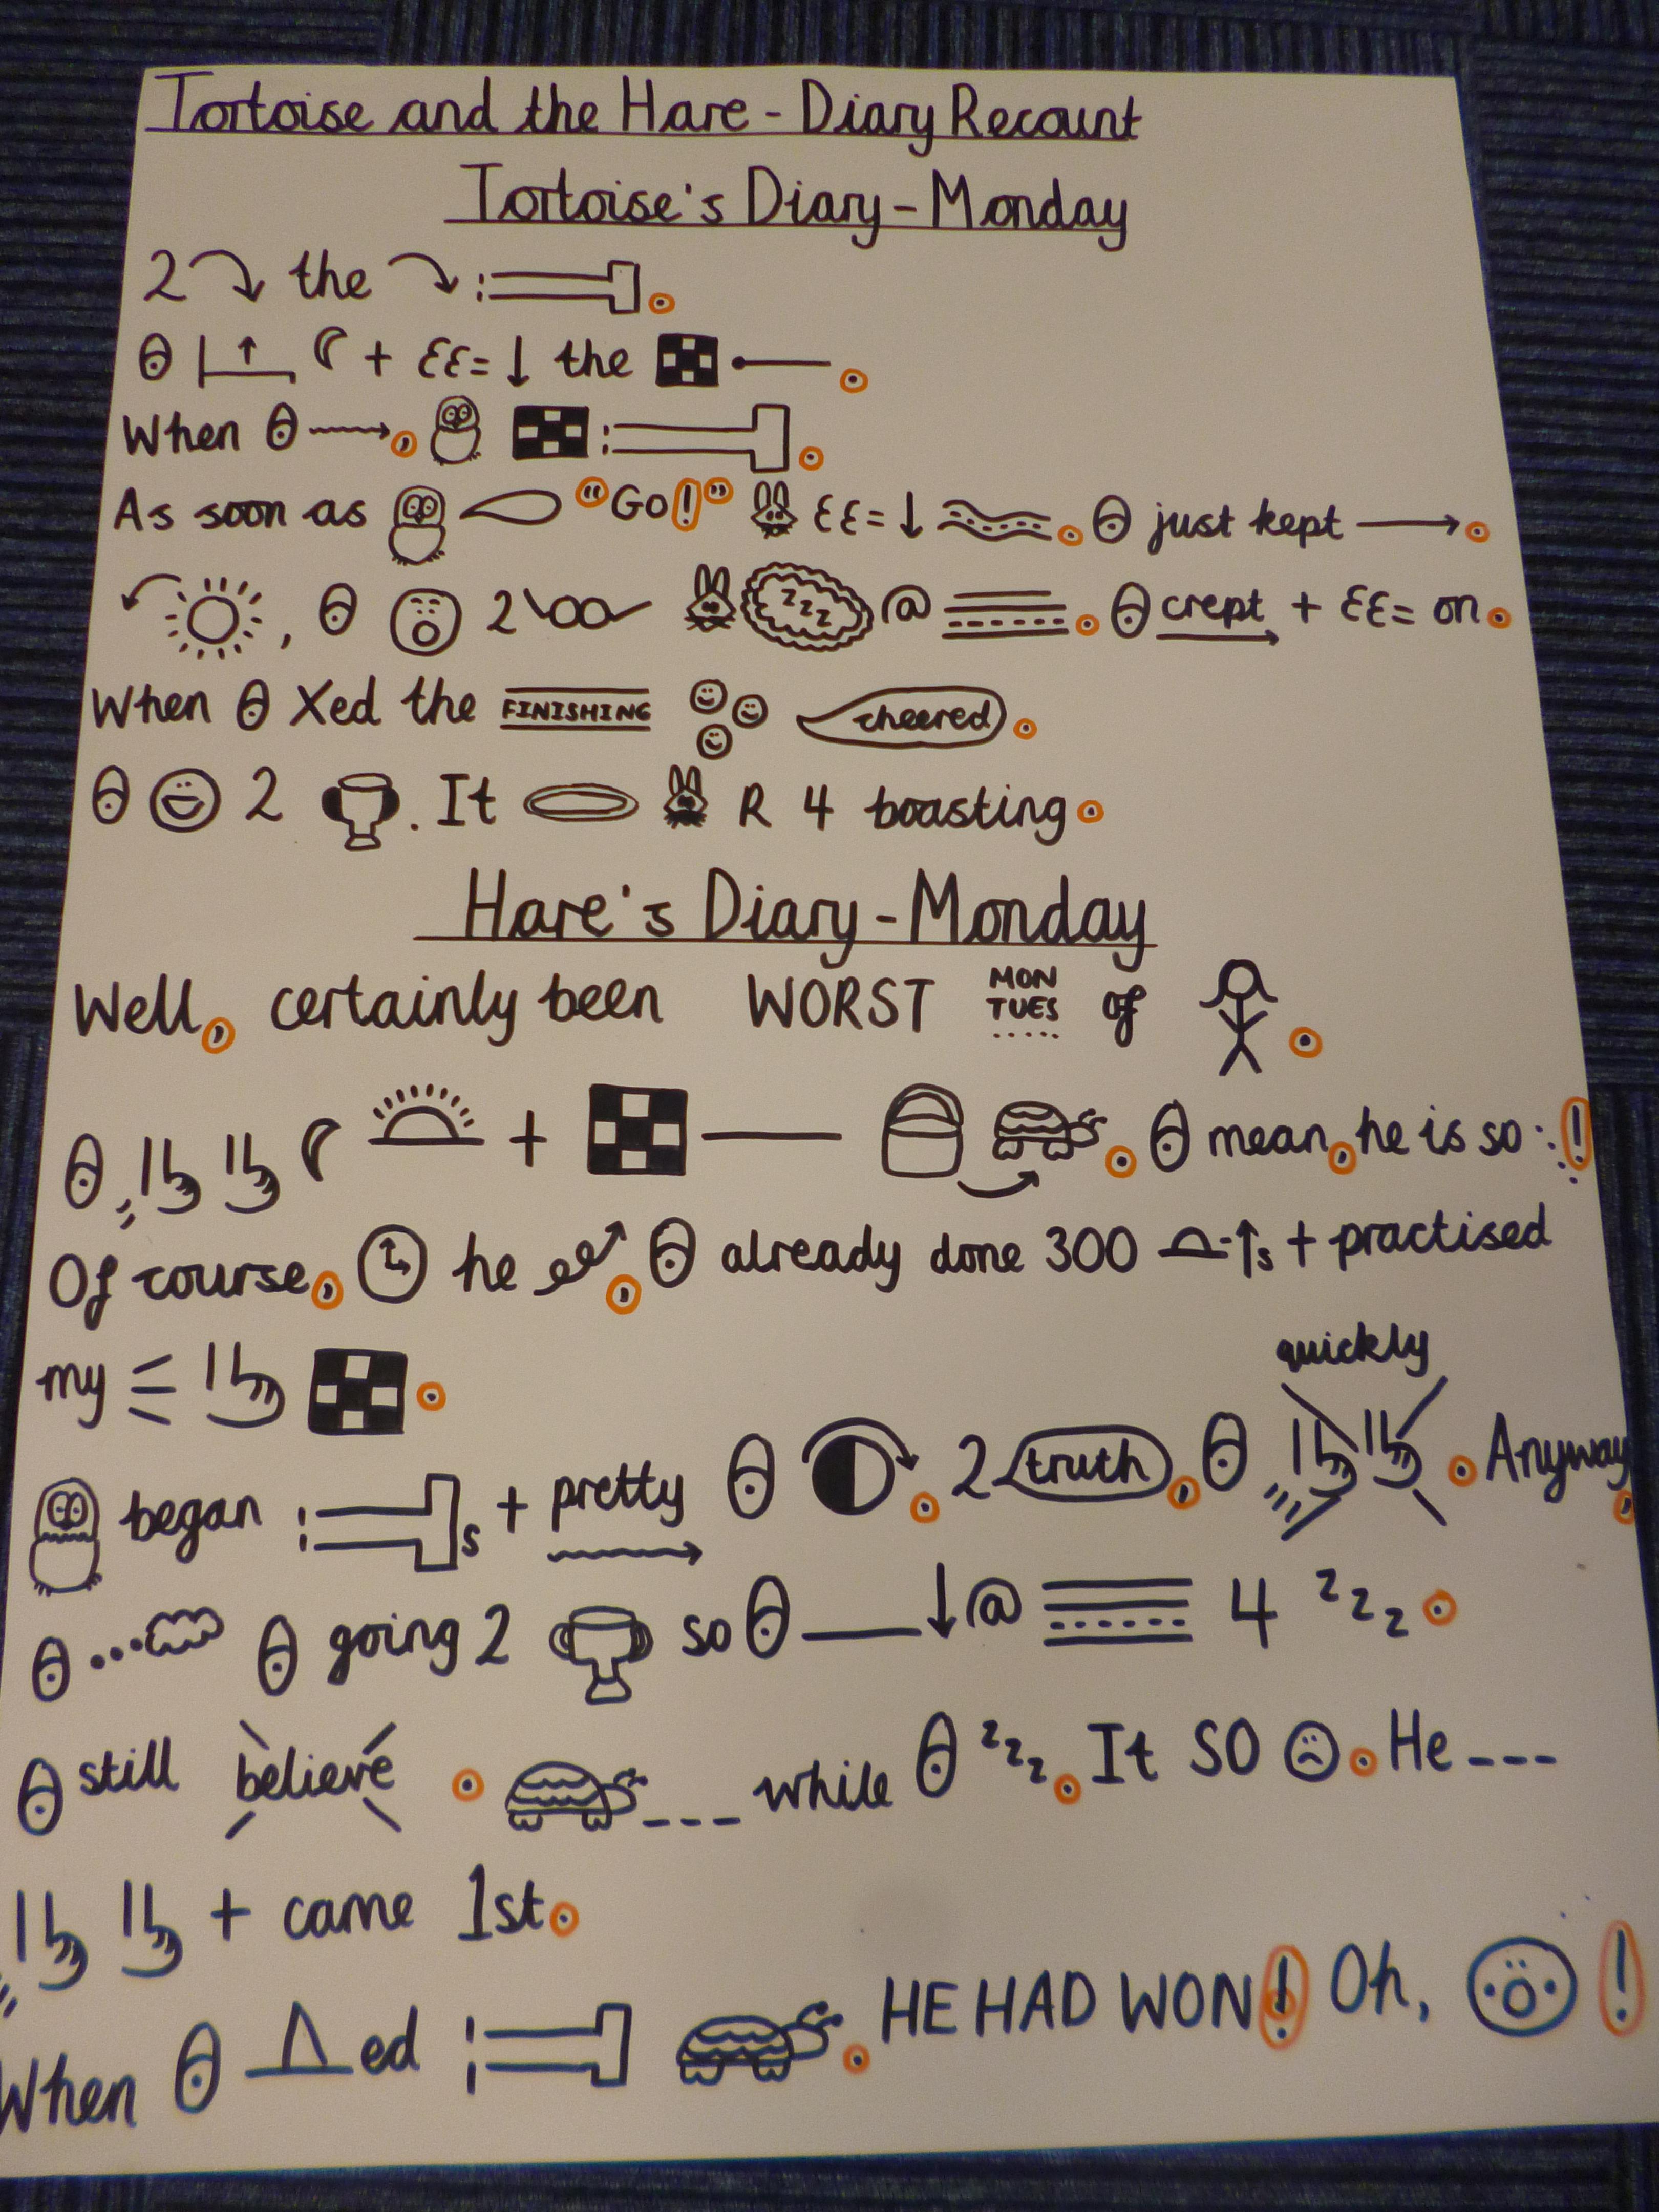 Tortoise and the Hare - Diary Recount
Tortoise's Diary - Monday
2 the :
+ = the .
When , : .
As soon as "Go!" = . just kept .
, 2 zzz @ . crept + = on.
When Xed the FINISHING cheered.
2 . It R 4 boasting.
Hare's Diary - Monday
Well, certainly been WORST MON TUES ..... of .
+ . mean, he is so !
Of course, he , already done 300 - s + practised
my .
quickly
began : s + pretty . 2 truth, . Anyway,
... going 2 so @ 4 zzz.
still believe . --- while zzz. It SO . He ---
+ came 1st.
When ed : . HE HAD WON! Oh, !